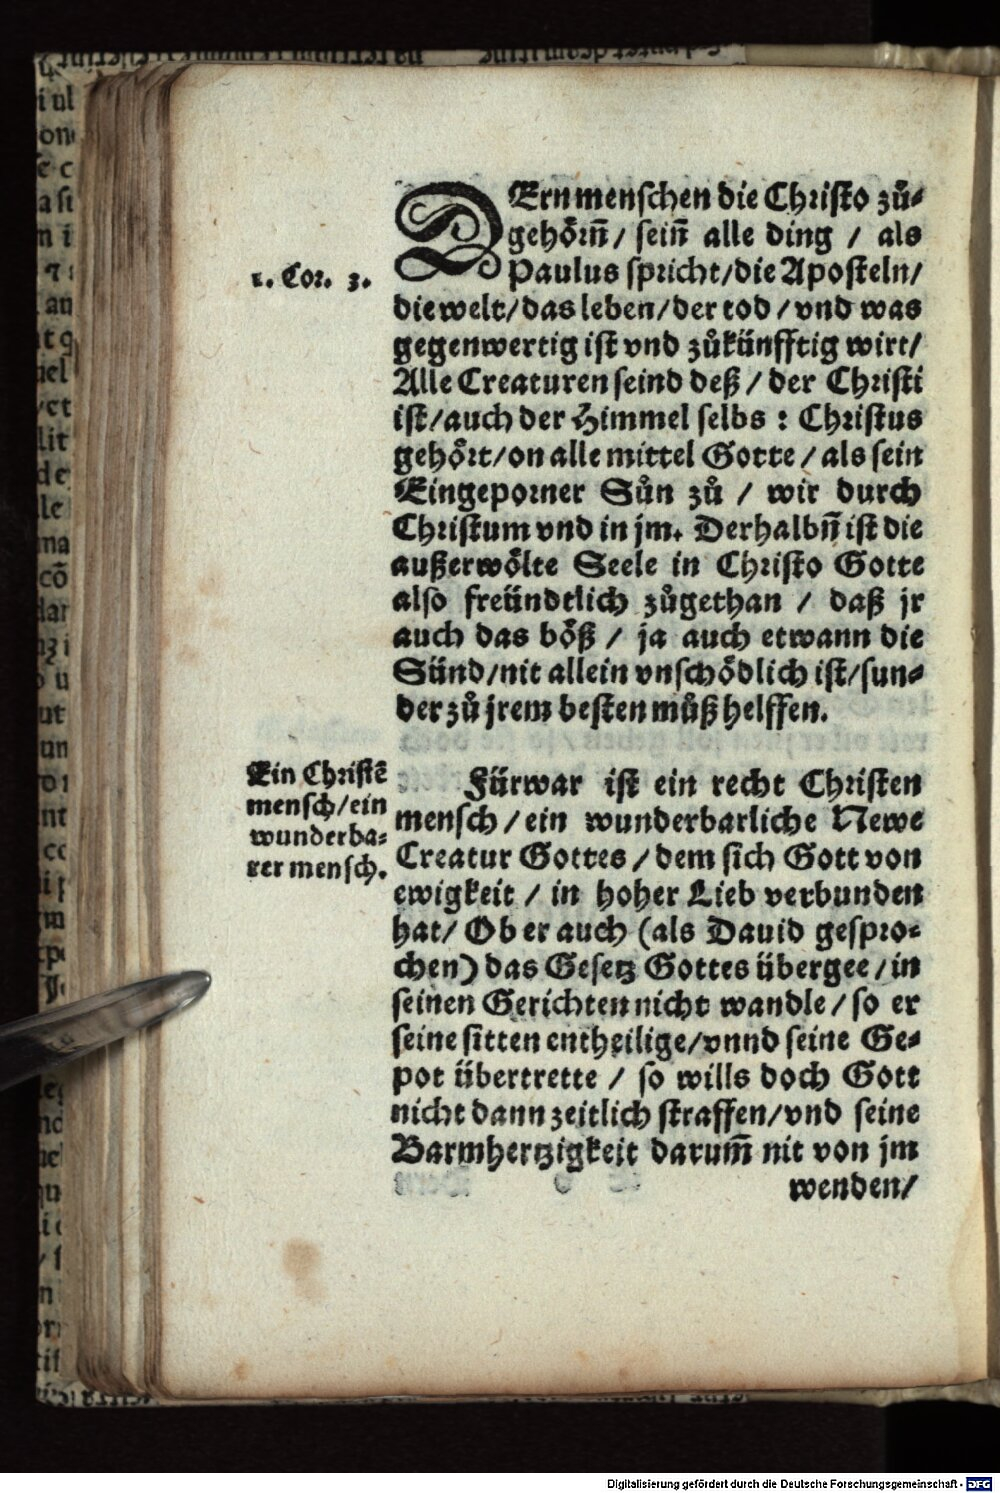 DErn menschen die Christo zů⸗
gehörn̄ / sein̄ alle ding / als
1. Cor. 3.
Paulus spricht / die Aposteln /
die welt / das leben / der tod / vnd was
gegenwertig ist vnd zůkünfftig wirt /
Alle Creaturen seind deß / der Christi
ist / auch der Himmel selbs : Christus
gehört / on alle mittel Gotte / als sein
Eingeporner Sůn zů / wir durch
Christum vnd in jm. Derhalbn̄ ist die
außerwölte Seele in Christo Gotte
also freündtlich zůgethan / daß jr
auch das böß / ja auch etwann die
Sünd / nit allein vnschödlich ist / sun⸗
der zů jrem besten můß helffen.
Ein Christē
mensch / ein
wunderba⸗
rer mensch.
Fürwar ist ein recht Christen
mensch / ein wunderbarliche Newe
Creatur Gottes / dem sich Gott von
ewigkeit / in hoher Lieb verbunden
hat / Ob er auch (als Dauid gespro⸗
chen) das Gesetz Gottes übergee / in
seinen Gerichten nicht wandle / so er
seine sitten entheilige / vnnd seine Ge⸗
pot übertrette / so wills doch Gott
nicht dann zeitlich straffen / vnd seine
Barmhertzigkeit darum̄ nit von jm
wenden /
Digitalisierung gefördert durch die Deutsche Forschungsgemeinschaft - DFG